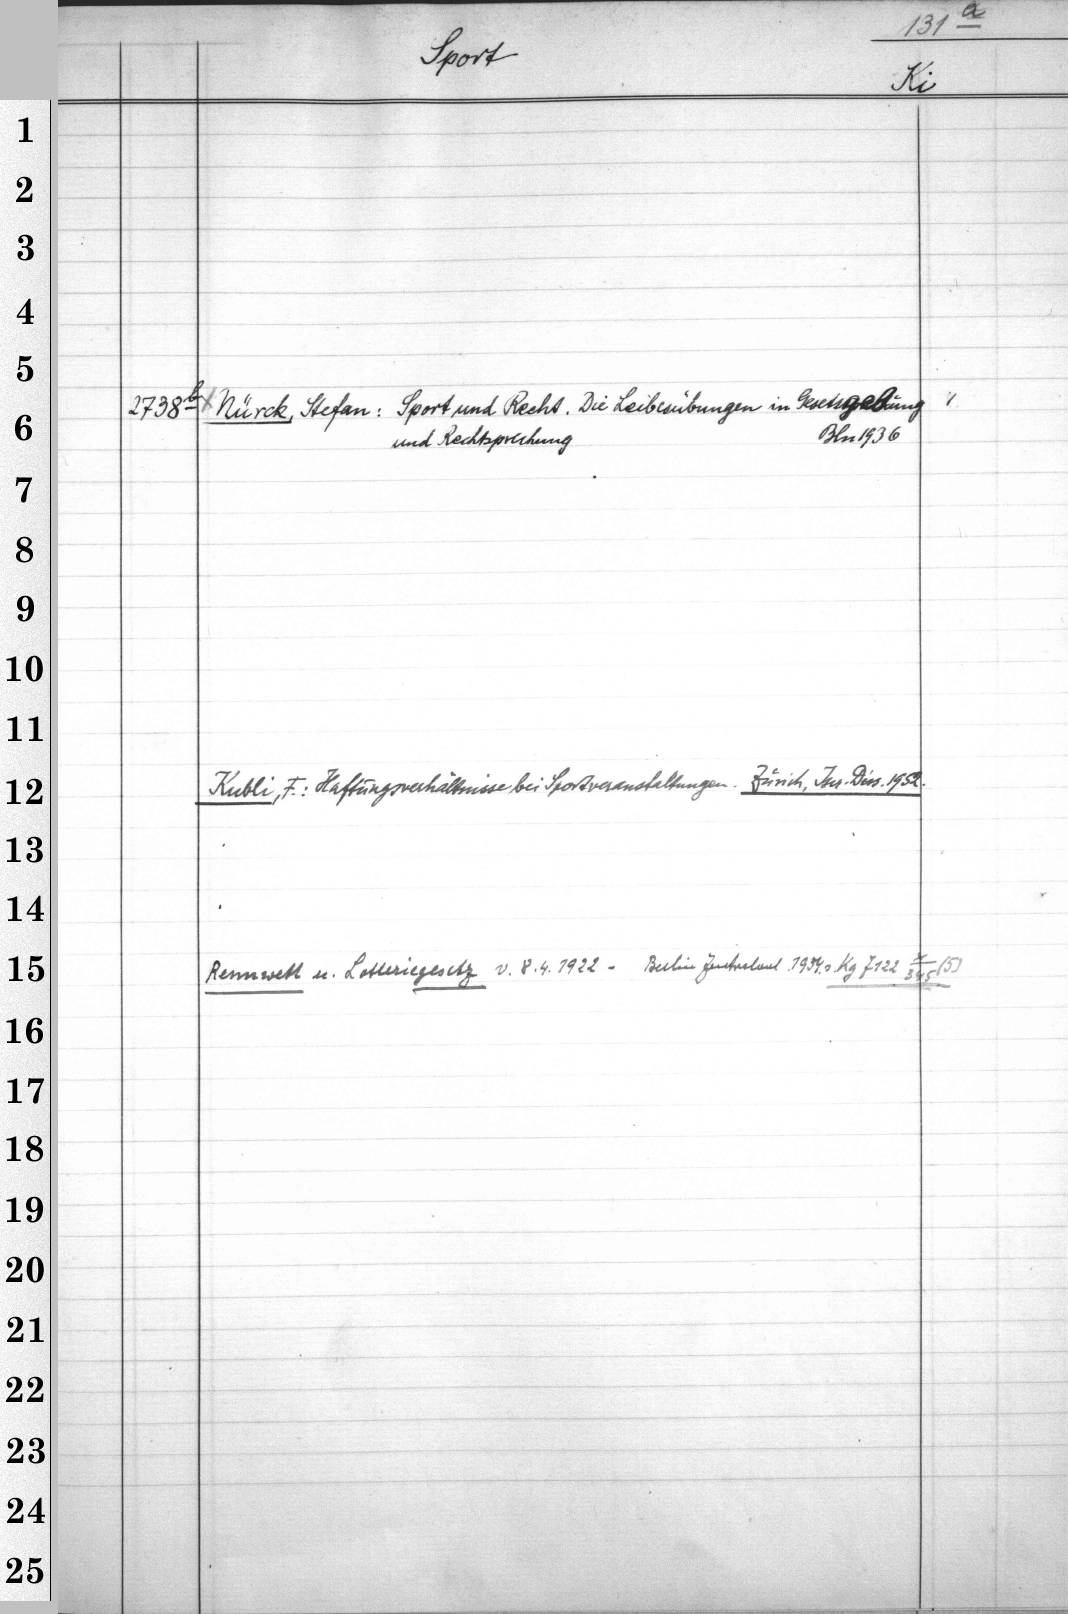 131 a
Sport
Ki
1
2
3
4
5
2738 b x Nürck, Stefan: Sport und Recht. Die Leibesübungen in Gesetzgebung
6
und Rechtsprechung Bln 1936
7
8
9
10
11
12 Kubli, F.: Haftungsverhältnisse bei Sportveranstaltungen. Zürich, Jur. Diss. 1952.
13
14
15 Rennwett u. Lotteriegesetz v. 8.4.1922 - Berlin 1934. Kg 7122 x/345 (5)
16
17
18
19
20
21
22
23
24
25